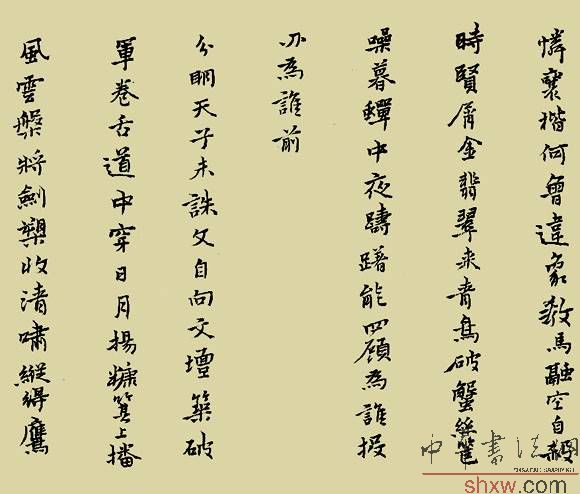 憐楷何違教馬融空自
時賢屑金翡翠来青鳥破蟹
噪暮蟬中夜躊躇能四顧為誰投
為誰前
分明天子未誅文自向文壇築破
軍卷舌道中穿日月揚糠箕上播
風雲槃將劍槊收清嘯縱得鷹
中華書法網
shxw.com